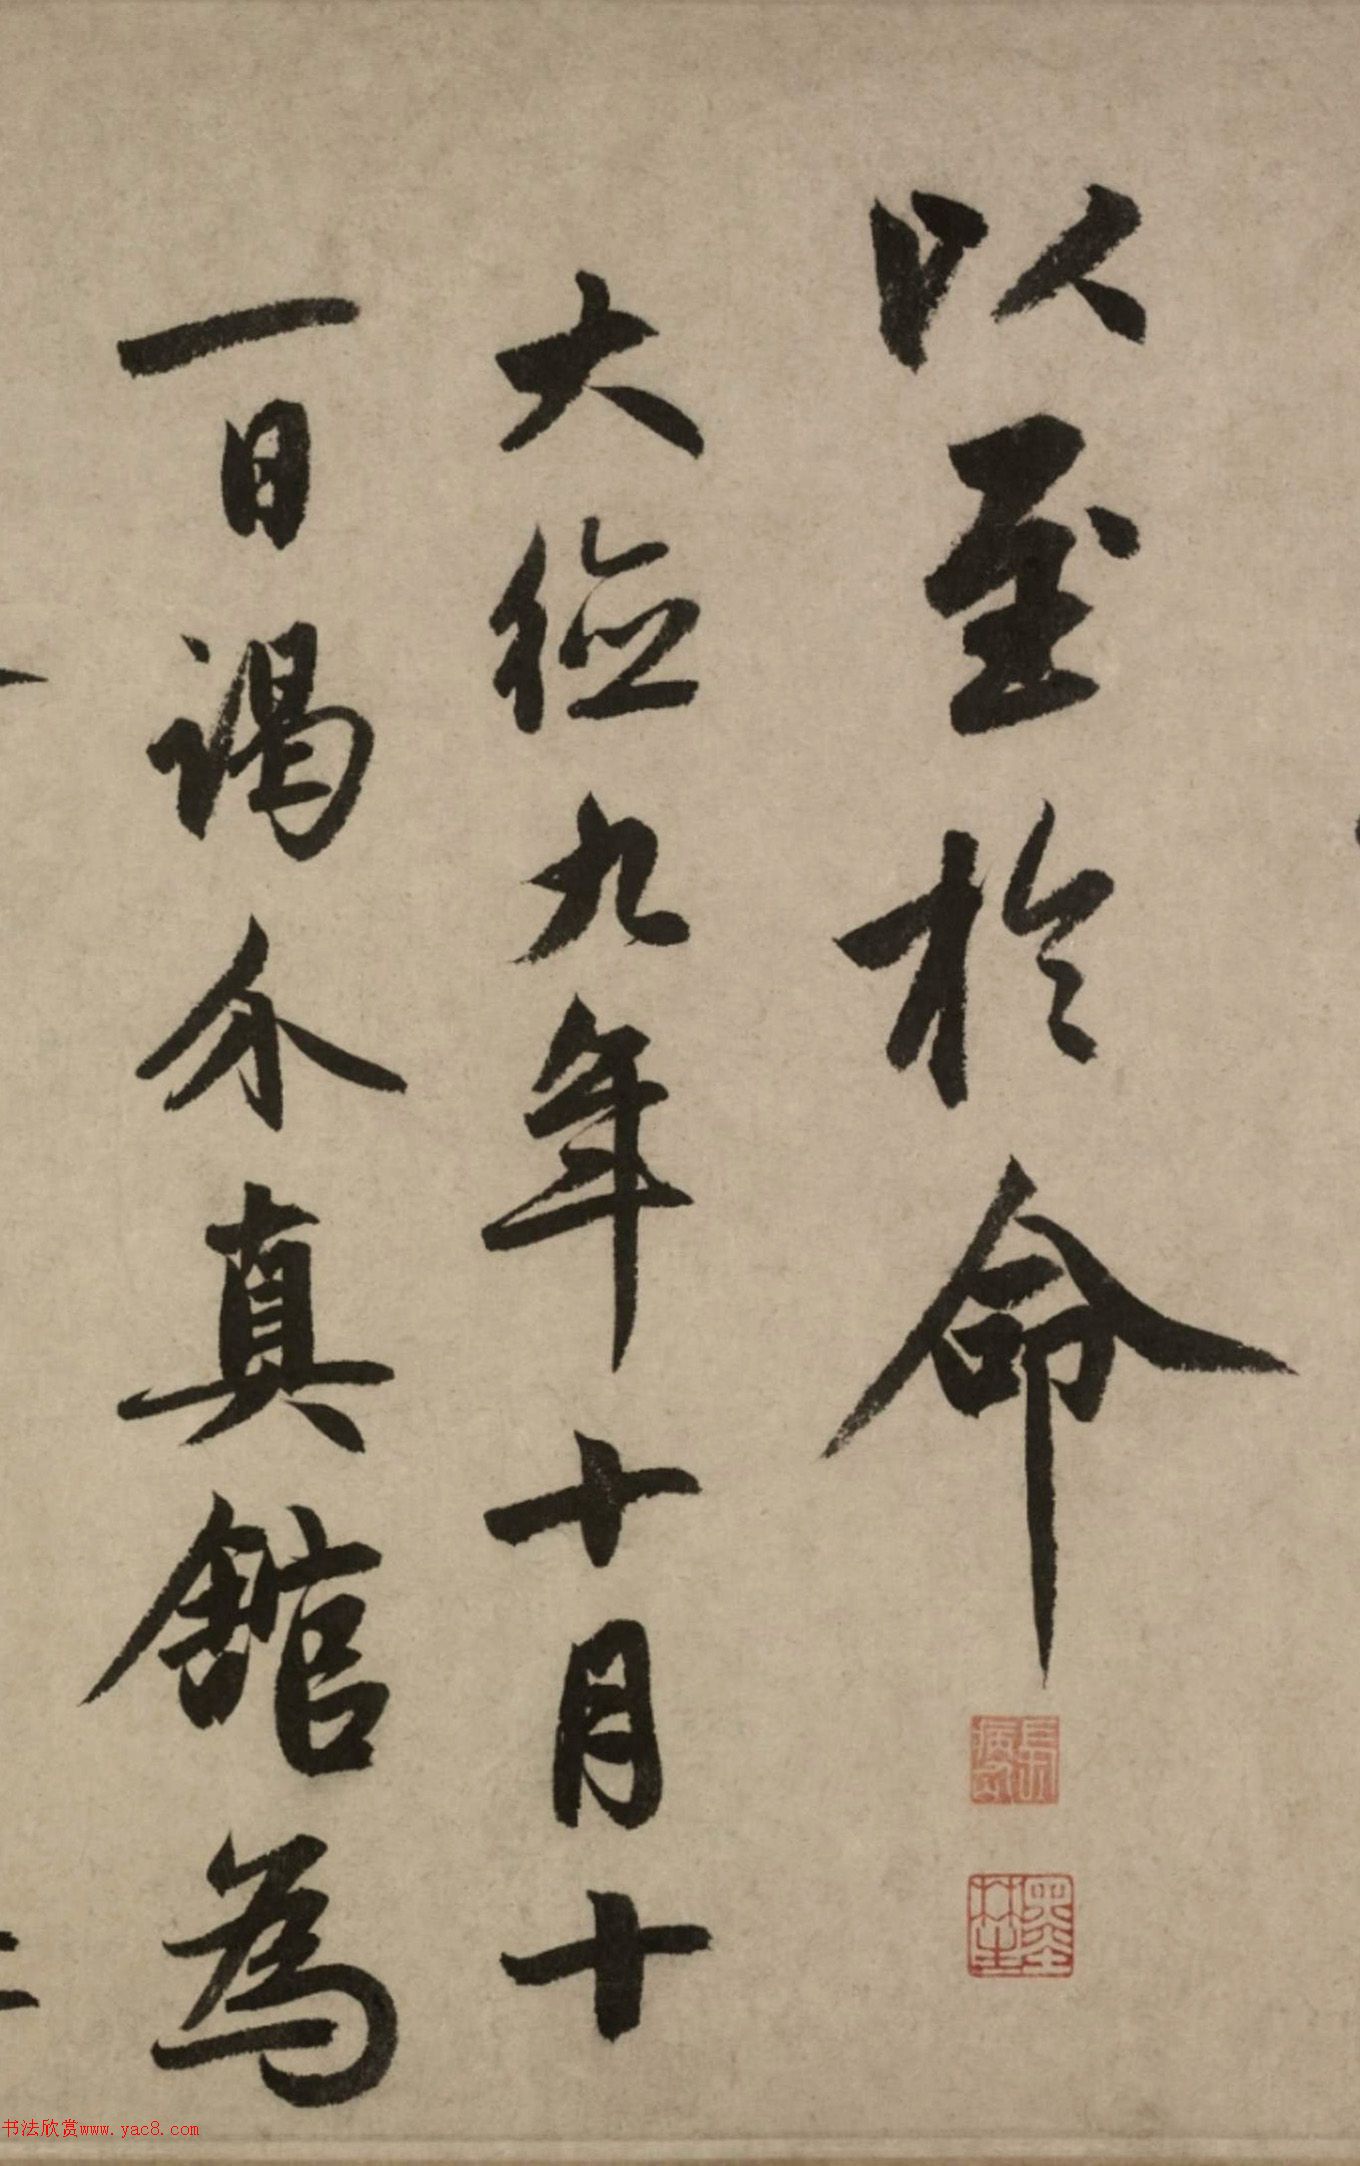 以至於命
大德九年十月十
一日謁介真館為
书法欣赏www.yac8.com